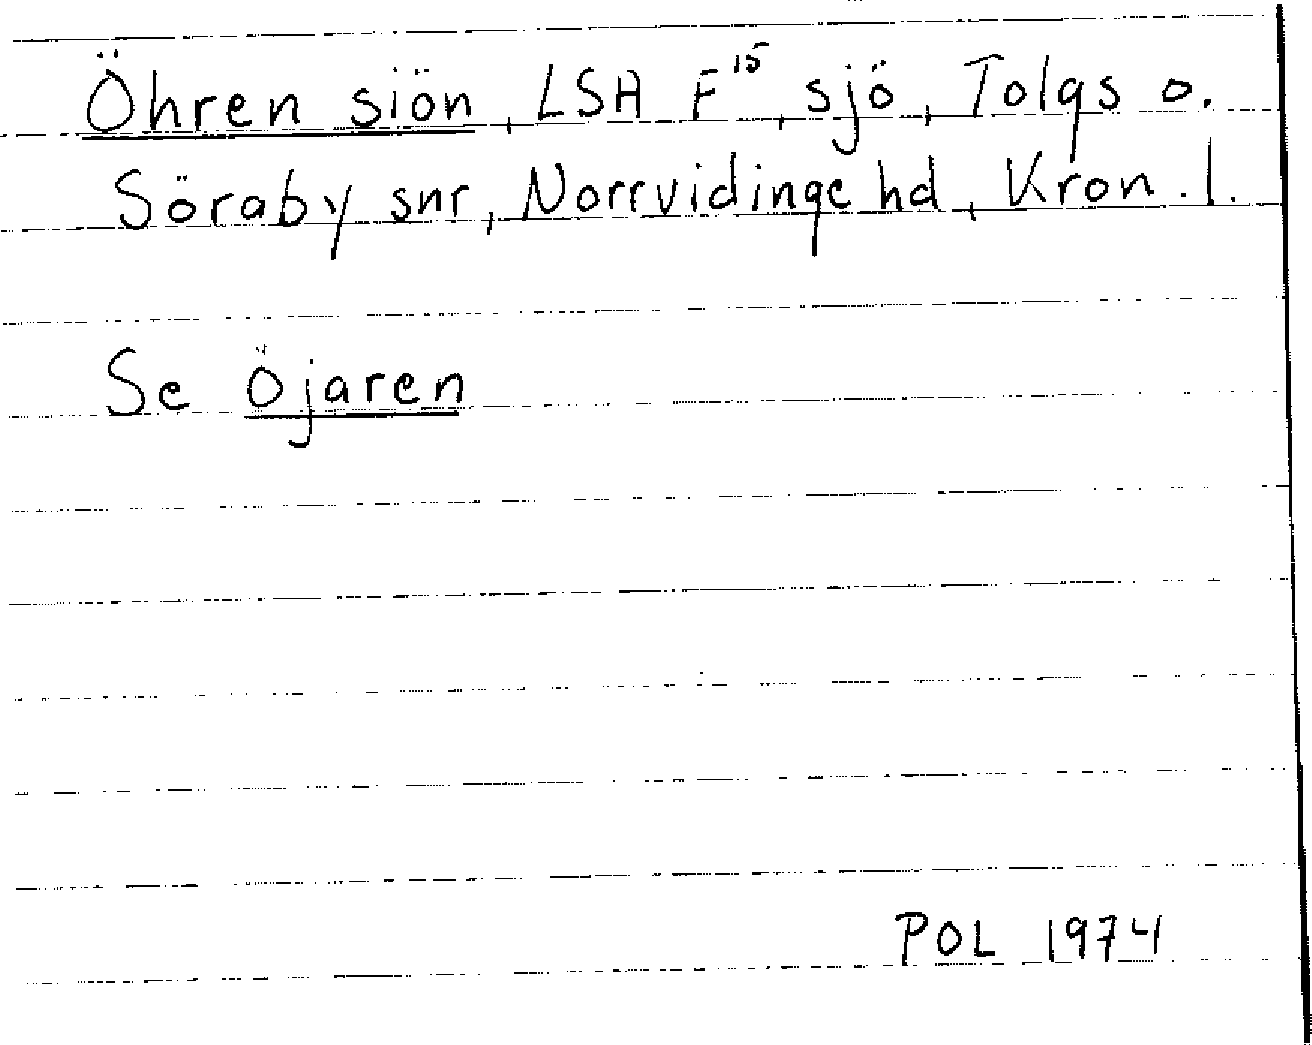 Öhren siön, LSA F¹⁵, sjö, Tolgs o.
Söraby snr, Norrvidinge hd, Kron. l.
Se Öjaren
POL 1974